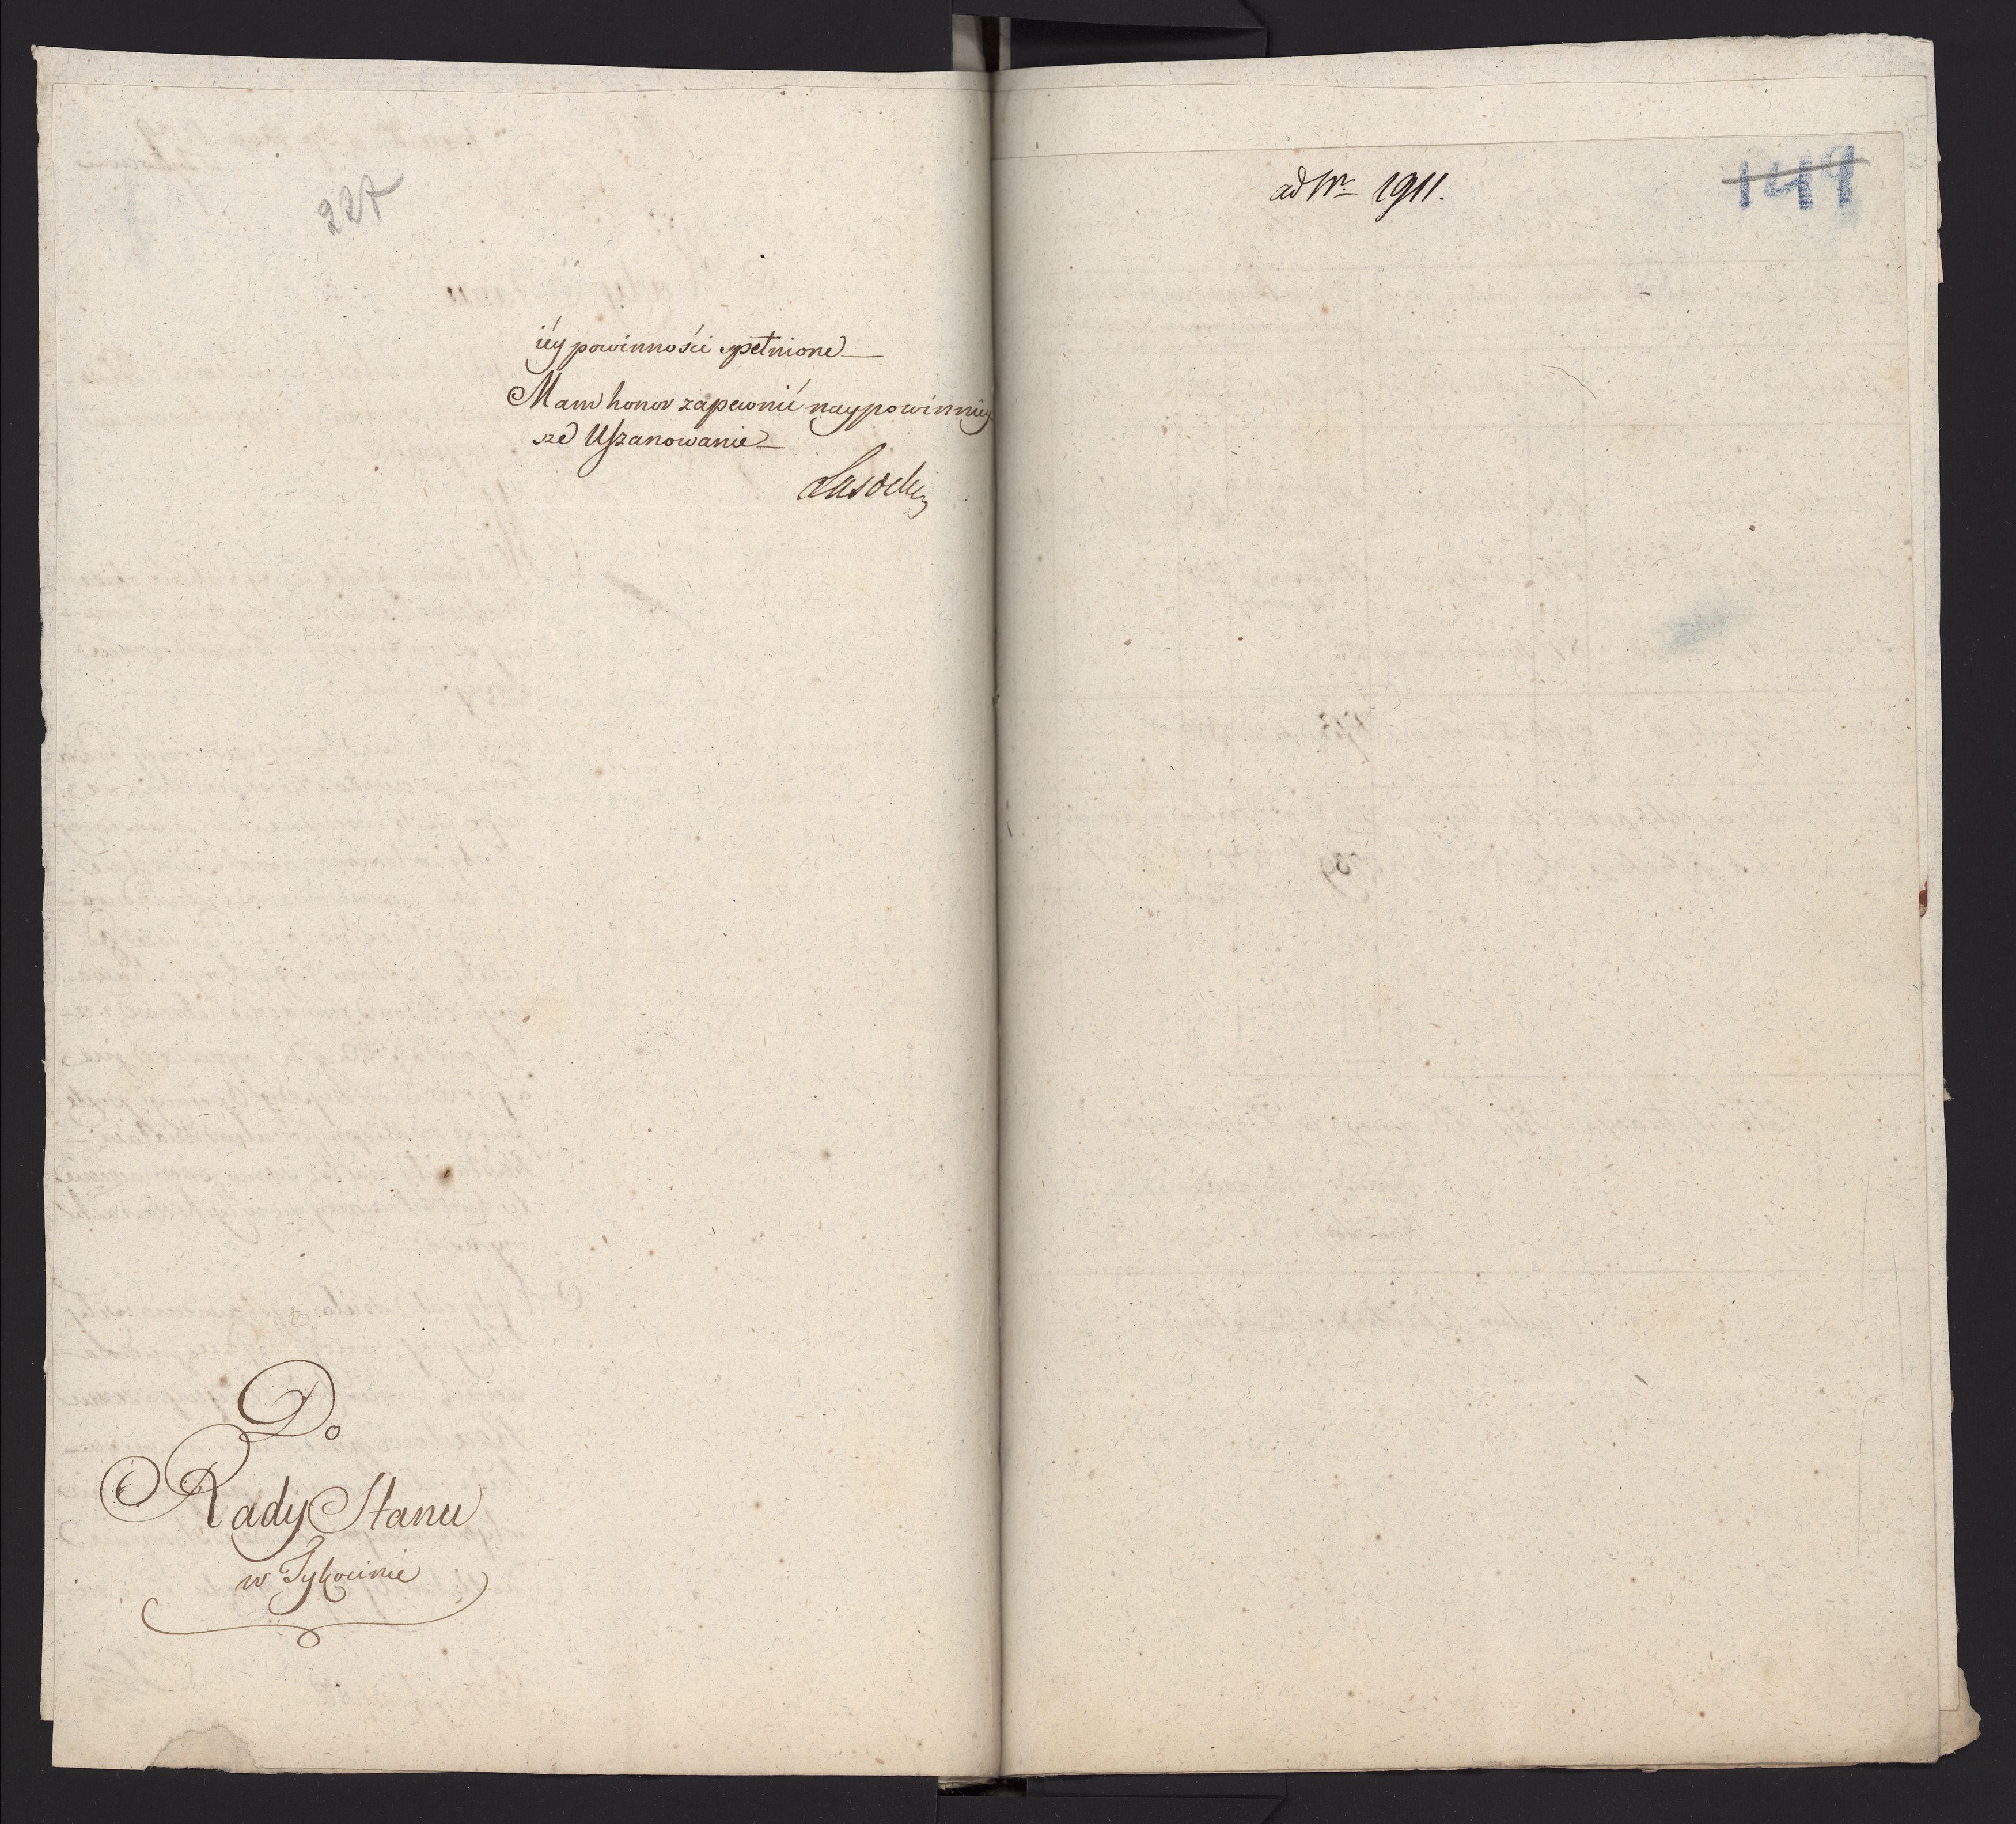 227
iéy powinności spełnione
Mam honor zapewnić naypowinniey
sze Uszanowanie
Lasocki
Do
Rady Stanu
w Tykocinie
ad Nr 1911.
149